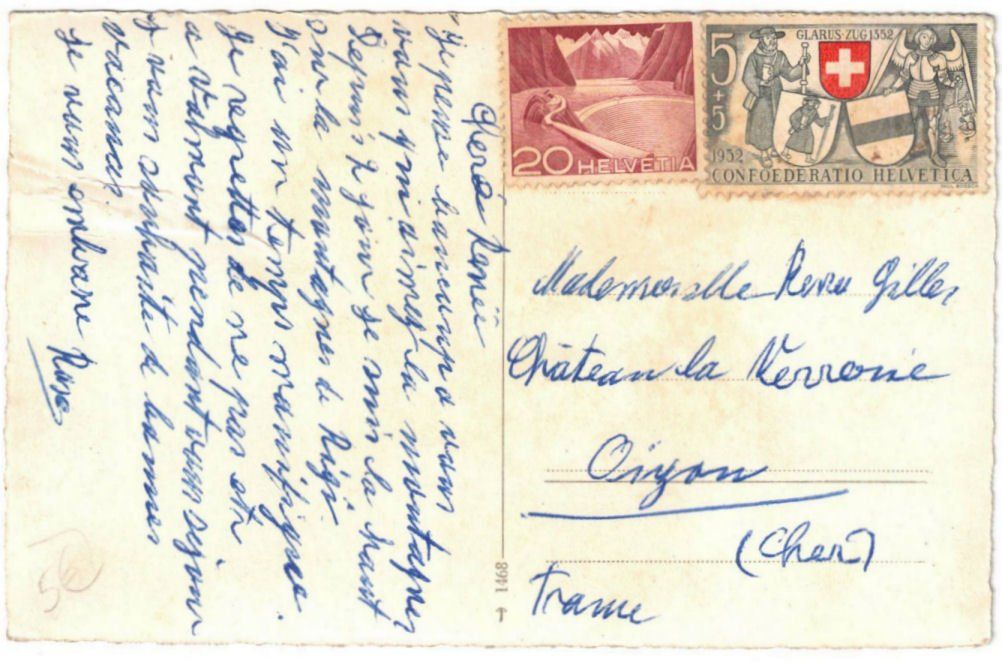 Chère Renée
Je pense beaucoup a vous
vous qui aimez la montagnes
Depuis 2 jours je suis la haut
sur la montagnes de Rigi
J'ai un temps magnifique.
Je regrettes de ne pas etr
a Valmont pendant vous sejour
Je vous souhaite de bonnes
vacances
Je vous embrasse
20 HELVETIA
5+5
GLARUS·ZUG 1352
1952
CONFOEDERATIO HELVETICA
Mademoiselle Renee Gilles
Château la Verrerie
Oizon
(Cher)
France
1468